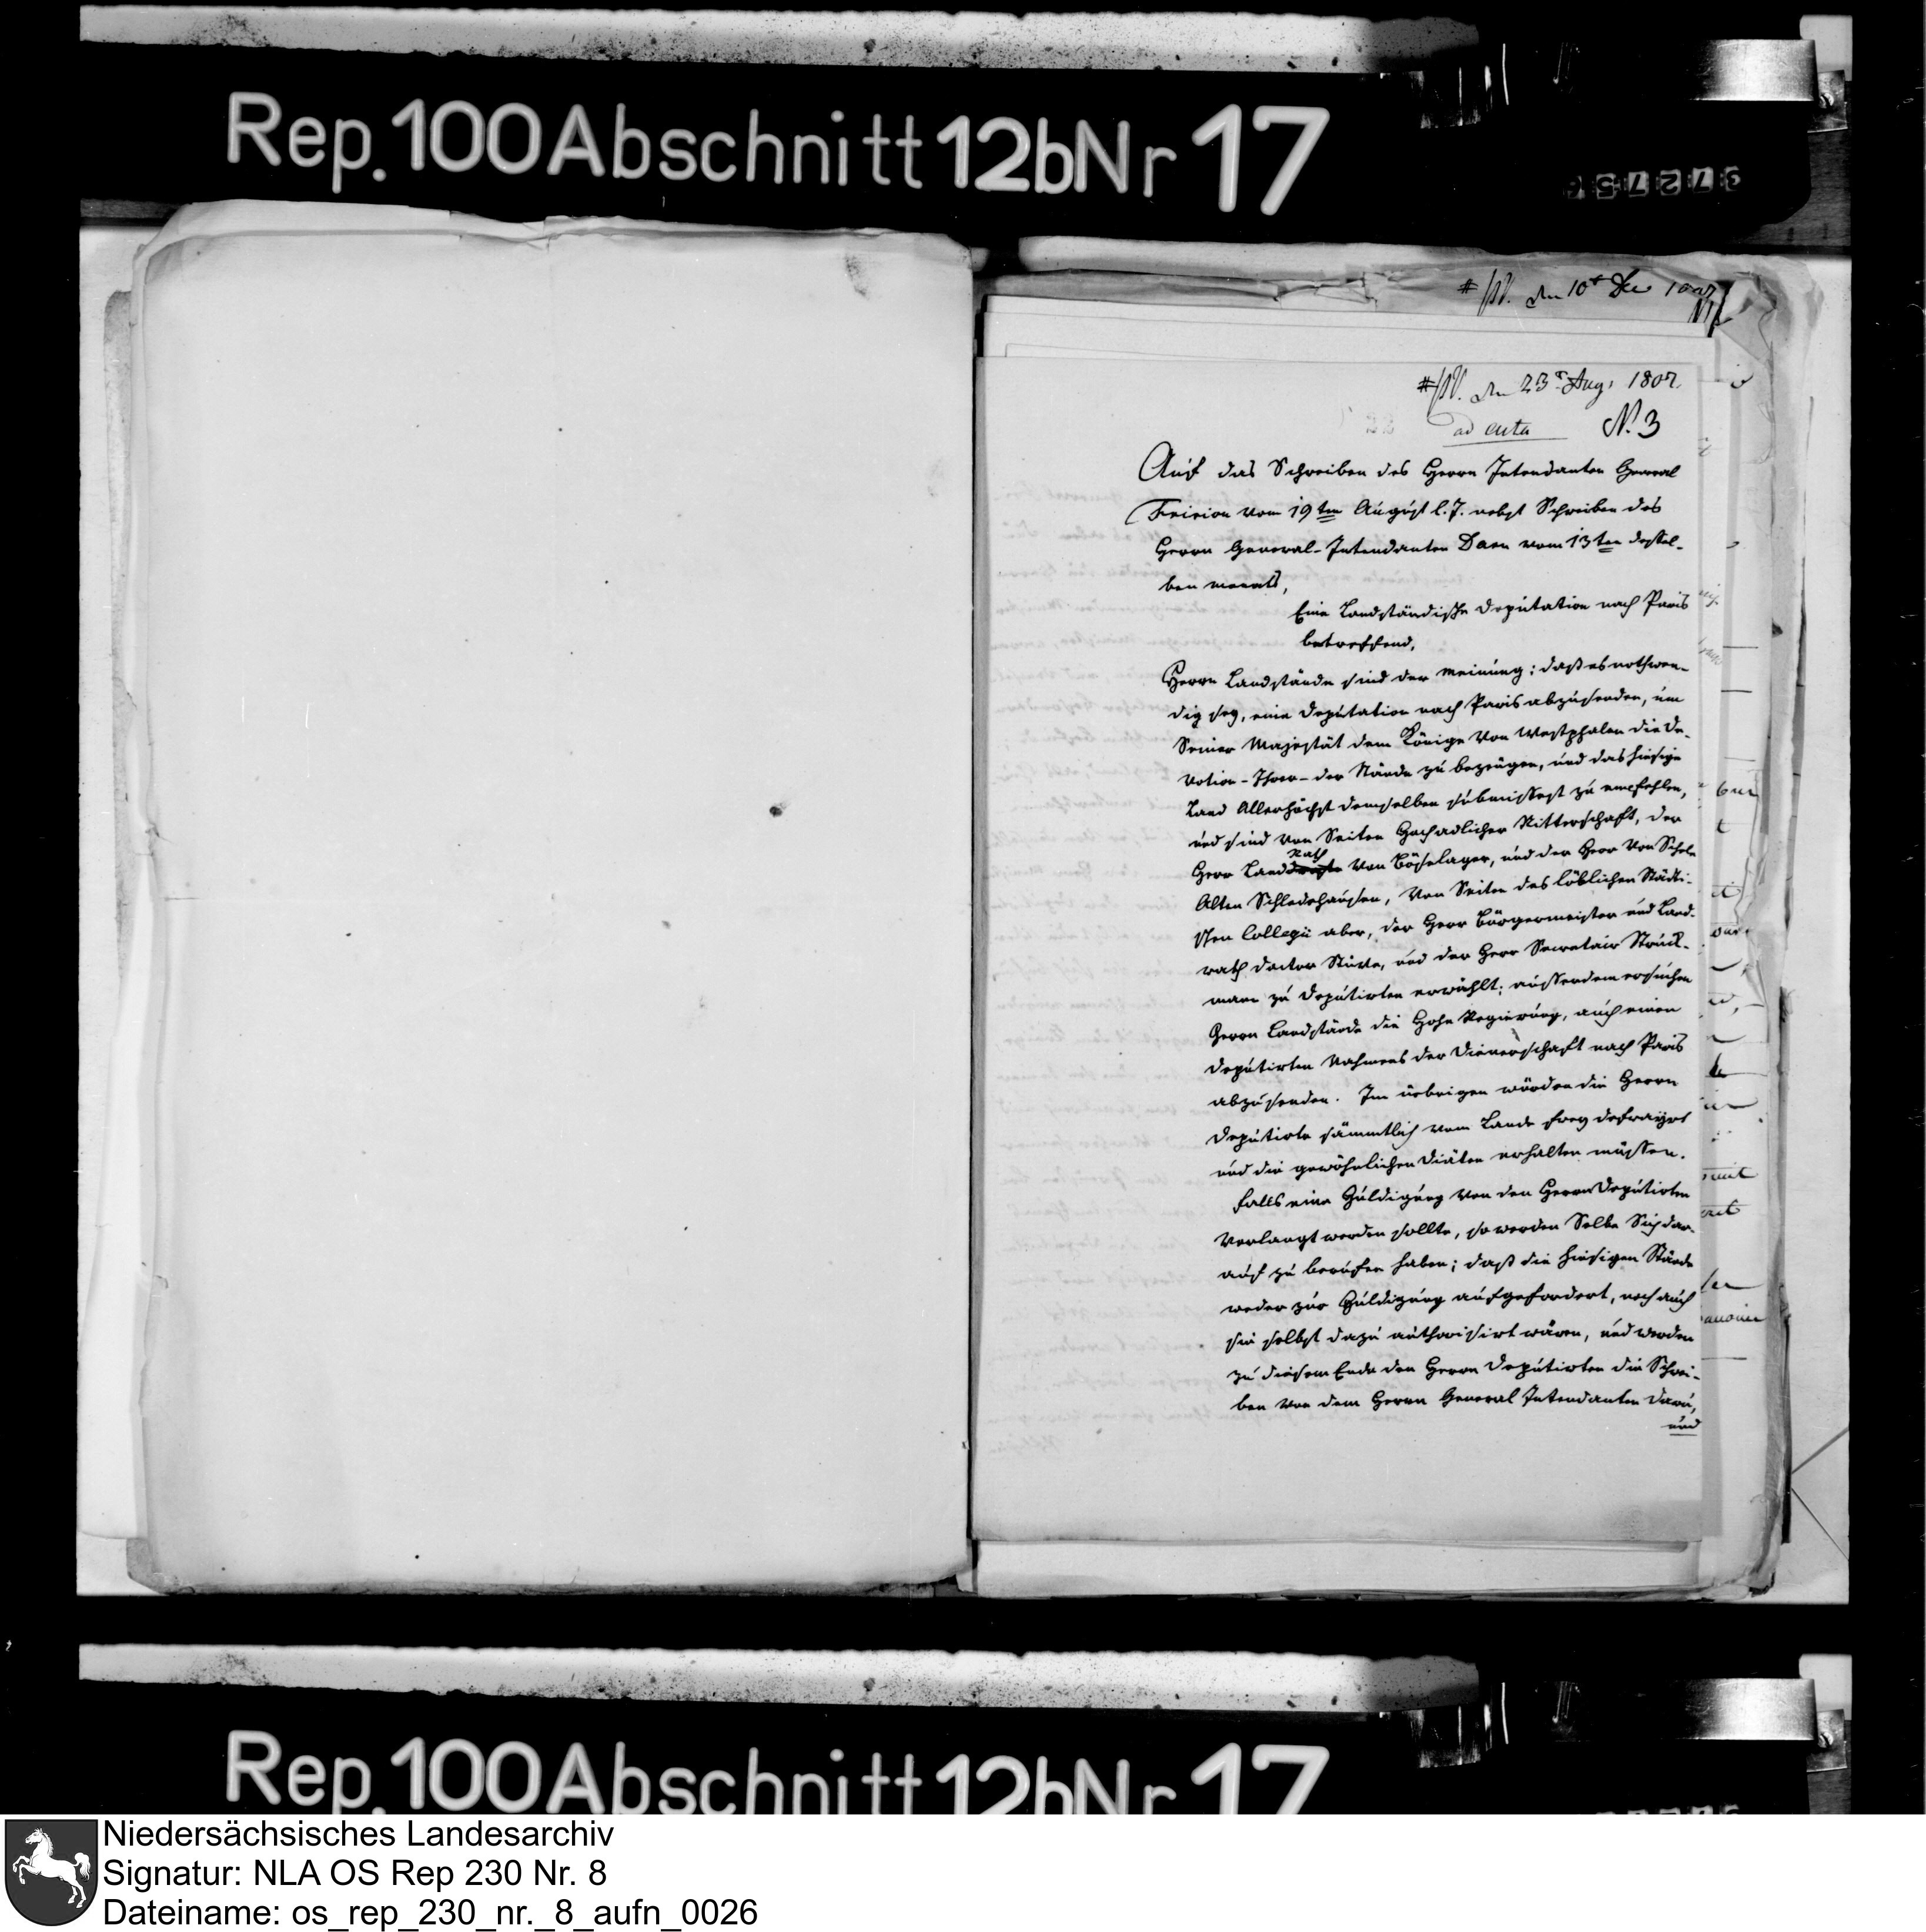 Rep. 100 Abschnitt 12b Nr 17
372756
den 10t Dec 1807
den 23t Aug. 1807.
ad acta N. 3
Auf das Schreiben des Herrn Intendanten General
vom 19ten August l. J. nebst Schreiben des
Herrn General-Intendanten Daru vom 13ten dessel-
ben monats,
Eine Landständische Deputation nach Paris
betreffend.
Herrn Landstände sind der meinung: daß es nothwen-
dig sey, eine Deputation nach Paris abzusenden, um
Seiner Majestät dem Könige von Westphalen die De-
votion - Ihrer - der Stände zu bezeugen, und das hiesige
Land Allerhöchst demselben submissest zu empfehlen,
und sind von Seiten Hochadlicher Ritterschaft, der
Rath
Herr Landdroste von Böselager, und der Herr von Schele
Alten Schledehausen, von Seiten des löblichen Städti-
schen Collegii aber, der Herr Bürgermeister und Land-
rath doctor Stüve, und der Herr Secretair Struck-
mann zu Deputirten erwählt; ausserdem ersuchen
Herrn Landstände die Hohe Regierung, auch einen
Deputirten Nahmens der Dienerschaft nach Paris
abzusenden. Im uebrigen würden die Herrn
Deputirte sämmtlich vom Lande frey defrayirt
und die gewöhnlichen Diäten erhalten müssen.
Falls eine Huldigung von den Herrn Deputirten
verlangt werden sollte, so werden Selbe Sich dar-
auf zu berufen haben; daß die hiesigen Stände
weder zur Huldigung aufgefordert, noch auch
sie selbst dazu authorisirt wären, und werden
zu diesem Ende den Herrn Deputirten die Schrei-
ben von dem Herrn General Intendanten Daru,
und
Rep. 100 Abschnitt 12b Nr 17
Niedersächsisches Landesarchiv
Signatur: NLA OS Rep 230 Nr. 8
Dateiname: os_rep_230_nr._8_aufn_0026